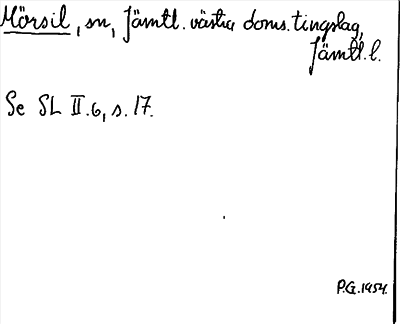 Mörsil, sn, Jämtl. västra doms. tingslag,
Jämtl. l.
Se SL II.6, s. 17.
P.G. 1954.